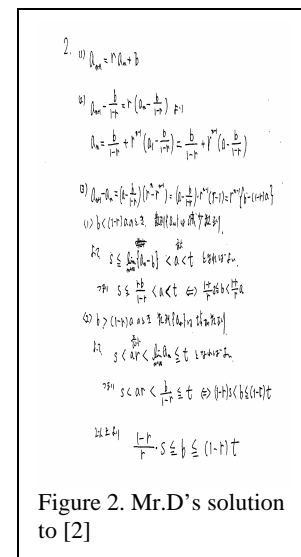 2. (1) aₙ₊₁ = r aₙ + b
(2) aₙ₊₁ - b/(1-r) = r(aₙ - b/(1-r)) より
aₙ = b/(1-r) + rⁿ⁻¹(a₁ - b/(1-r)) = b/(1-r) + rⁿ⁻¹(a - b/(1-r))
(3) aₙ₊₁ - aₙ = (a - b/(1-r))(rⁿ - rⁿ⁻¹) = (a - b/(1-r)) rⁿ⁻¹(r-1) = rⁿ⁻¹{b-(1-r)a}
(1) b < (1-r)a のとき 数列{aₙ}は減少数列
s ≦ lim {aₙ - b} < a < t
s ≦ rb/(1-r) < a < t ⇔
(2) b > (1-r)a のとき 数列{aₙ}は増加数列
s < ar < lim aₙ ≦ t
s < ar < b/(1-r) ≦ t ⇔ (1-r)s < b ≦ (1-r)t
以上より (1-r)/r · s ≦ b ≦ (1-r)t
Figure 2. Mr.D's solution
to [2]